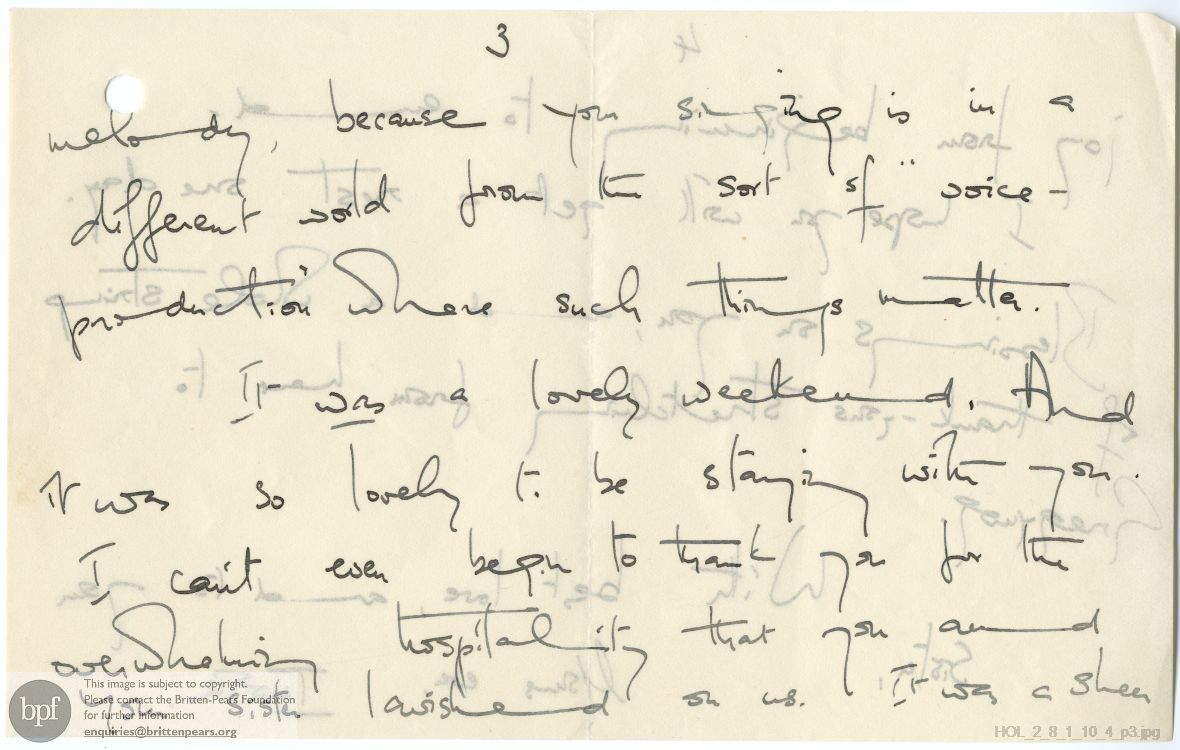 3
melody, because your singing is in a
different world from the sort of "voice-
production" where such things matter.
It was a lovely weekend. And
it was so lovely to be staying with you.
I can't even begin to thank you for the
overwhelming hospitality that you and
your sister lavished on us. It was a sheer
bpf
This image is subject to copyright.
Please contact the Britten-Pears Foundation
for further information
enquiries@brittenpears.org
HOL_2_8_1_10_4_p3.jpg